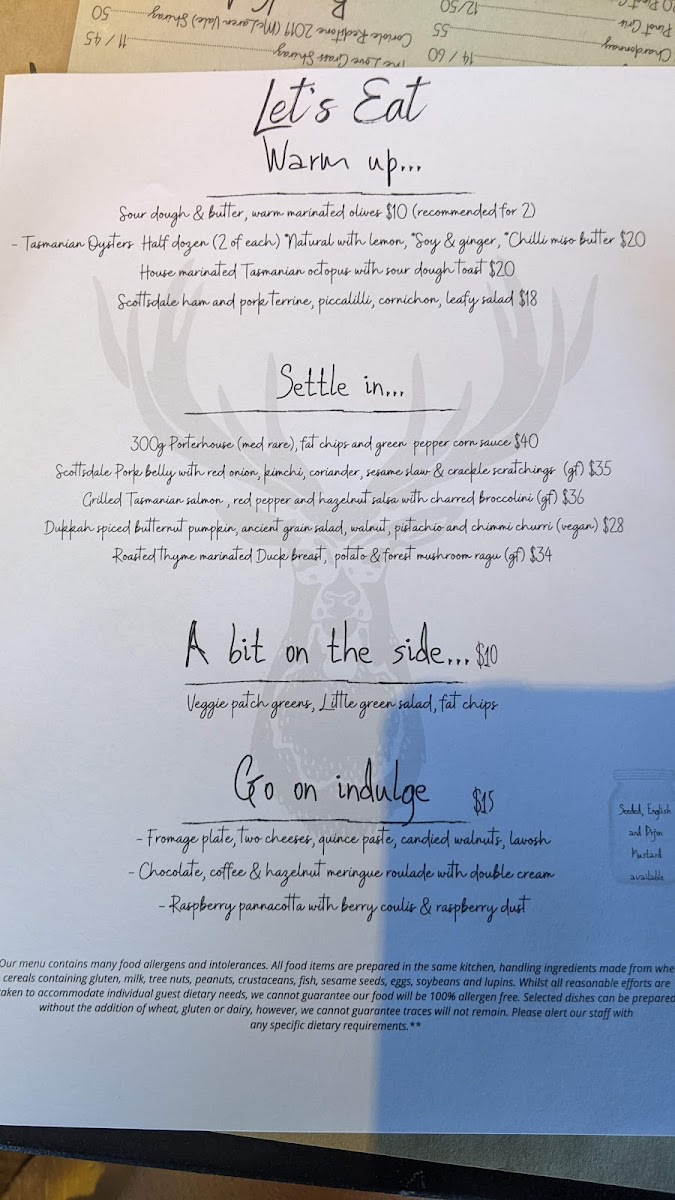 50
Coriole Redstone 2019 (McLaren Vale) Shiraz
11 / 45
The Love Grass Shiraz
12/50
Pinot Gris
55
Chardonnay
14 / 60
Let's Eat
Warm up...
Sour dough & butter, warm marinated olives $10 (recommended for 2)
- Tasmanian Oysters Half dozen (2 of each) *Natural with lemon, *Soy & ginger, *Chilli miso butter $20
House marinated Tasmanian octopus with sour dough toast $20
Scottsdale ham and pork terrine, piccalilli, cornichon, leafy salad $18
Settle in...
300g Porterhouse (med rare), fat chips and green pepper corn sauce $40
Scottsdale Pork belly with red onion, kimchi, coriander, sesame slaw & crackle scratchings (gf) $35
Grilled Tasmanian salmon , red pepper and hazelnut salsa with charred broccolini (gf) $36
Dukkah spiced butternut pumpkin, ancient grain salad, walnut, pistachio and chimmi churri (vegan) $28
Roasted thyme marinated Duck breast, potato & forest mushroom ragu (gf) $34
A bit on the side... $10
Veggie patch greens, Little green salad, fat chips
Go on indulge $15
- Fromage plate, two cheeses, quince paste, candied walnuts, lavosh
- Chocolate, coffee & hazelnut meringue roulade with double cream
- Raspberry pannacotta with berry coulis & raspberry dust
Seeded, English
and Dijon
Mustard
available
Our menu contains many food allergens and intolerances. All food items are prepared in the same kitchen, handling ingredients made from whe
cereals containing gluten, milk, tree nuts, peanuts, crustaceans, fish, sesame seeds, eggs, soybeans and lupins. Whilst all reasonable efforts are
aken to accommodate individual guest dietary needs, we cannot guarantee our food will be 100% allergen free. Selected dishes can be prepared
without the addition of wheat, gluten or dairy, however, we cannot guarantee traces will not remain. Please alert our staff with
any specific dietary requirements.**